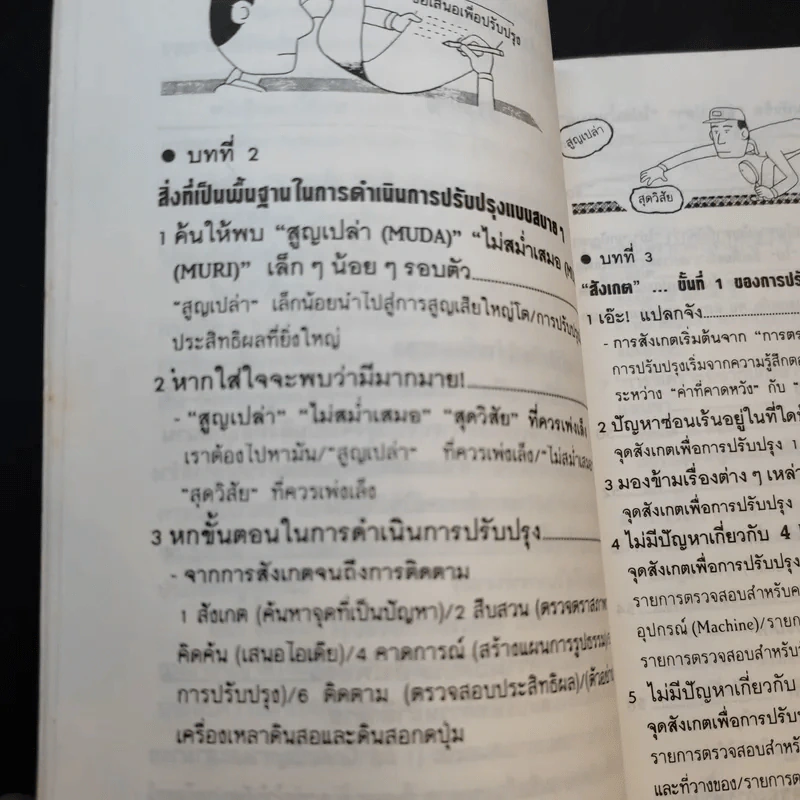 ข้อเสนอเพื่อปรับปรุง
● บทที่ 2
สิ่งที่เป็นพื้นฐานในการดำเนินการปรับปรุงแบบสบาย ๆ
1 ค้นให้พบ “สูญเปล่า (MUDA)” “ไม่สม่ำเสมอ
(MURI)” เล็ก ๆ น้อย ๆ รอบตัว
“สูญเปล่า” เล็กน้อยนำไปสู่การสูญเสียใหญ่โต/การปรับปรุง
ประสิทธิผลที่ยิ่งใหญ่
2 หากใส่ใจจะพบว่ามีมากมาย!
- “สูญเปล่า” “ไม่สม่ำเสมอ” “สุดวิสัย” ที่ควรเพ่งเล็ง
เราต้องไปหามัน/“สูญเปล่า” ที่ควรเพ่งเล็ง/“ไม่สม่ำเสมอ
“สุดวิสัย” ที่ควรเพ่งเล็ง
3 หกขั้นตอนในการดำเนินการปรับปรุง
- จากการสังเกตจนถึงการติดตาม
1 สังเกต (ค้นหาจุดที่เป็นปัญหา)/2 สืบสวน (ตรวจตราสภาพ
คิดค้น (เสนอไอเดีย)/4 คาดการณ์ (สร้างแผนการรูปธรรม)/
การปรับปรุง)/6 ติดตาม (ตรวจสอบประสิทธิผล)/(ตัวอย่าง
เครื่องเหลาดินสอและดินสอกดปุ่ม
สูญเปล่า
สุดวิสัย
● บทที่ 3
“สังเกต” ... ขั้นที่ 1 ของการปรับ
1 เอ๊ะ! แปลกจัง
- การสังเกตเริ่มต้นจาก “การตร
การปรับปรุงเริ่มจากความรู้สึกต
ระหว่าง “ค่าที่คาดหวัง” กับ “
2 ปัญหาซ่อนเร้นอยู่ในที่ใด
จุดสังเกตเพื่อการปรับปรุง 1
3 มองข้ามเรื่องต่าง ๆ เหล่า
จุดสังเกตเพื่อการปรับปรุง
4 ไม่มีปัญหาเกี่ยวกับ 4
จุดสังเกตเพื่อการปรับปรุง
รายการตรวจสอบสำหรับค
อุปกรณ์ (Machine)/รายกา
รายการตรวจสอบสำหรับ
5 ไม่มีปัญหาเกี่ยวกับ
จุดสังเกตเพื่อการปรับ
รายการตรวจสอบสำหรั
และที่วางของ/รายการต